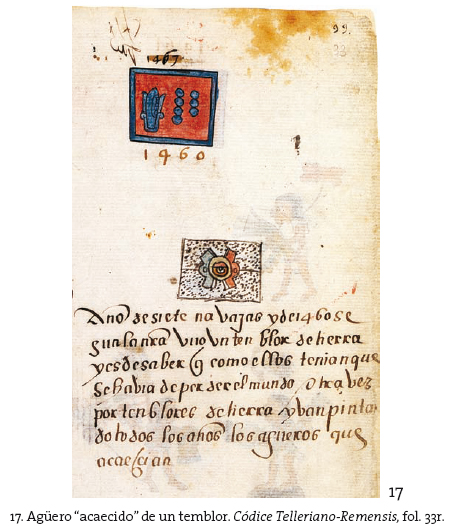 99.
33
1467
1460
Año de siete navajas y de 1460 se
gun la nra vuo vn tenblor de tierra
y es de saber q como ellos tenian que
se havia de perder el mundo otra vez
por tenblores de tierra yvan pintan
do todos los años los agueros que
acaeçian
17
17. Agüero “acaecido” de un temblor. Códice Telleriano-Remensis, fol. 33r.